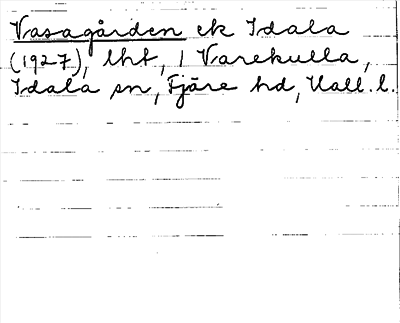 Vasagården ek Idala
(1927), lht, 1 Varekulla,
Idala sn, Fjäre hd, Hall.l.